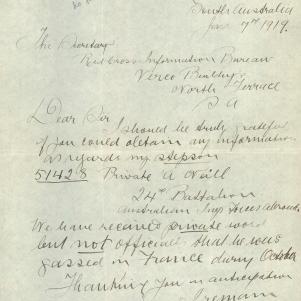 South Australia
Jan 7th 1919.
The Secretary
Red Cross Information Bureau
Verco Building
North Terrace
S A
Dear Sir
I should be truly grateful
if you could obtain any information
as regards my stepson
51428 Private A Neill
24th Battalion
Australian Imp Forces abroad
We have received private word
but not official, that he was
gassed in France during October
Thanking you in anticipation